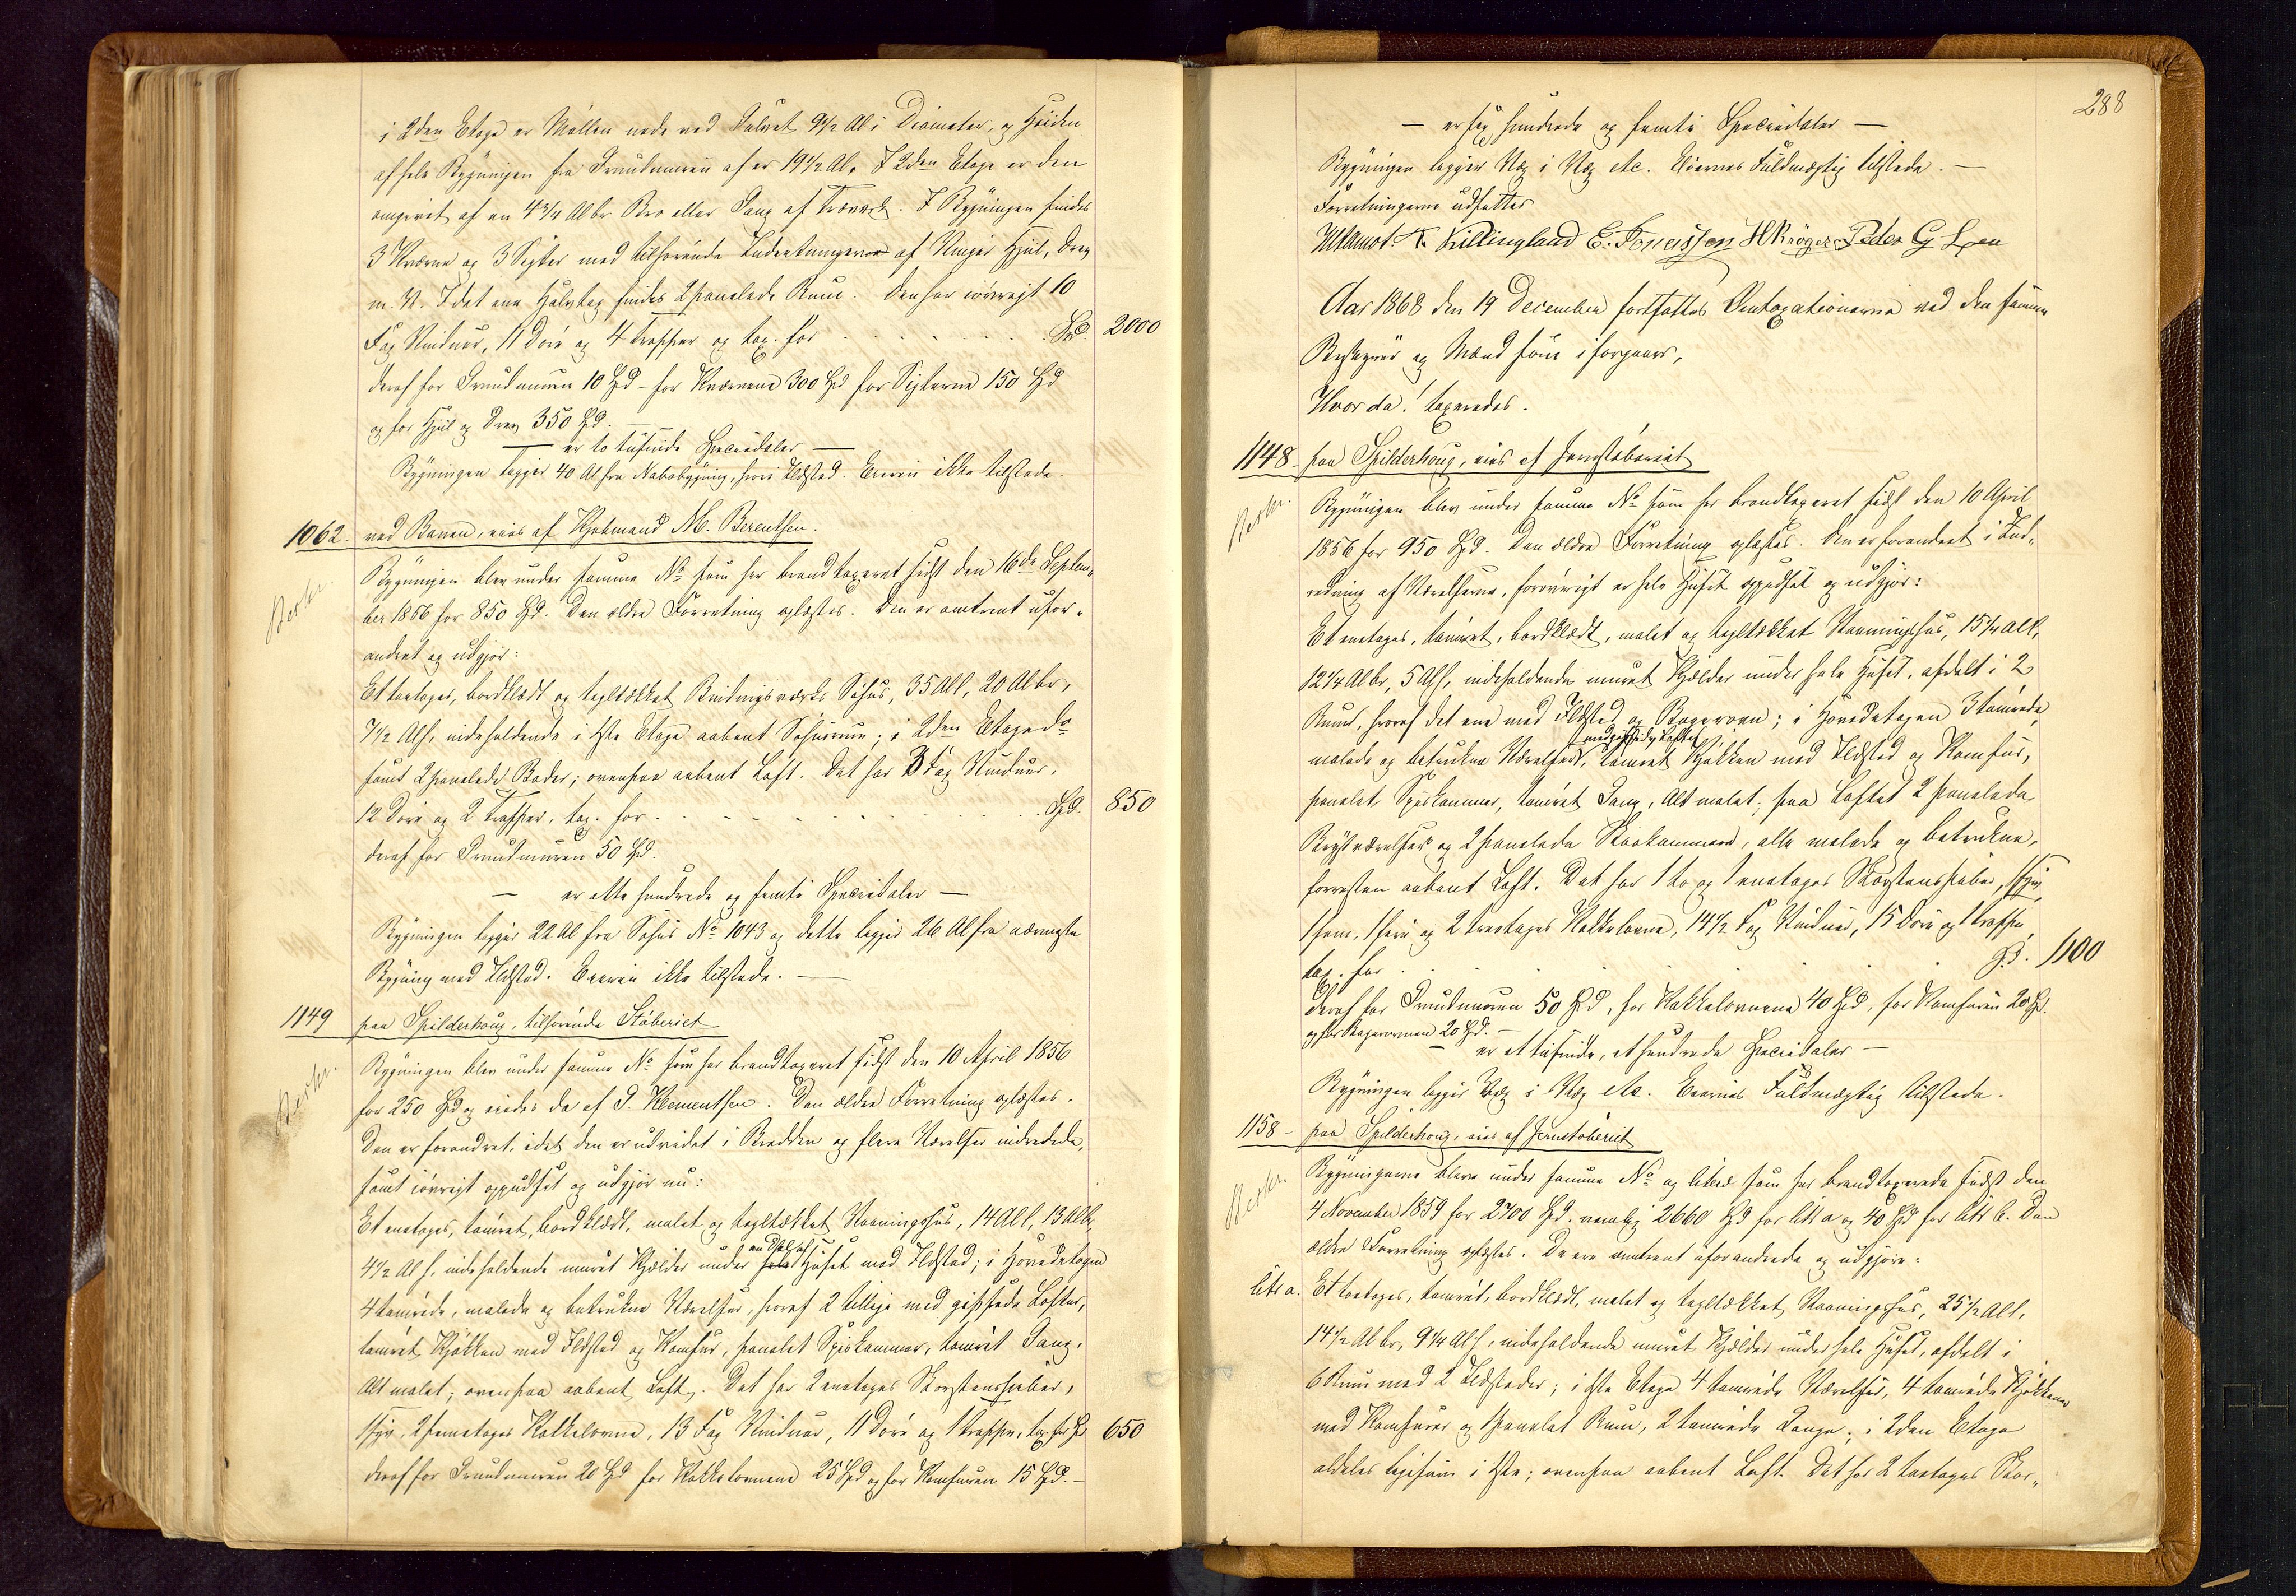 i 2den Etage er Møllen nede ved Gulvet 9½ Al i Diameter, og Høiden
af hele Bygningen fra Grundmuren af er 19½ Al. I 2den Etage er den
omgivet af en 4¾ Al br Bro eller Gang af Træværk. I Bygningen findes
3 Kværne og 3 Sigter med tilhørende Indretninger af Vinger Hjul, Drev
m. V. I det ene Halvtag findes 2 panelede Rum. Den har iøvrigt 10
Fag Vinduer, 11 Døre og 4 Trapper og tax. for . . . . . . Spd. 2000
deraf for Grundmuren 10 Spd – for Kværnene 300 Spd for Sigterne 150 Spd
og for Hjul og Drev 350 Spd. –
— er to tusinde Speciedaler —
Bygningen ligger 40 Al fra Nabobygning, hvori Ildsted. Eieren ikke tilstede.
1062. ved Banen, eies af Kjøbmand M. Berentsen.
Beskr.
Bygningen blev under samme No som før brandtaxeret sidst den 16de Septem„
ber 1856 for 850 Spd. Den ældre Forretning oplæstes. Den er omtrent ufor„
andret og udgjør:
Et toetages, bordklædt og tegltækket Bindingsværks Søhus, 35 Al l, 20 Al br,
7½ Al h, indeholdende i 1ste Etage aabent Søhusrum; i 2den Etage do
samt 2 panelede Boder; ovenpaa aabent Loft. Det har 3 Fag Vinduer,
12 Døre og 2 Trapper, tax. for . . . . . . Spd. 850
deraf for Grundmuren 50 Spd.
— er otte hundrede og femti Speciedaler —
Bygningen ligger 22 Al fra Søhus No 1043 og dette ligger 26 Al fra nærmeste
Bygning med Ildsted. Eieren ikke tilstede. —
1149 paa Spilderhoug, tilhørende Støberiet
Beskr.
Bygningen blev under samme No som før brandtaxeret sidst den 10 April 1856
for 250 Spd og eiedes da af P. Klementsen. Den ældre Forretning oplæstes.
Den er forandret, idet den er udvidet i Bredden og flere Værelser indredede,
samt iøvrigt oppudset og udgjør nu:
Et enetages, tømret, bordklædt, malet og tegltækket Vaaningshus, 14 Al l, 13 Al br
en Deel af
4½ Al h, indeholdende muret Kjelder under hele Huset med Ildsted; i Hovedetagen
4 tømrede, malede og betrukne Værelser, hvoraf 2 tillige med gipsede Lofter,
tømret Kjøkken med Ildsted og Komfur, panelet Spiskammer, tømret Gang,
Alt malet; ovenpaa aabent Loft. Det har 2 enetages Skorstenspiber,
1 fyr, 2 femetages Kakkelovne, 13 Fag Vinduer, 11 Døre og 1 Trappe, tax. for Spd 650
deraf for Grundmuren 20 Spd for Kakkelovnene 25 Spd og for Komfuren 15 Spd. –
288
— er sex hundrede og femti Speciedaler —
Bygningen ligger Væg i Væg etc. Eiernes Fuldmægtig tilstede. —
Forretningerne udsattes
T. Killingland E. Jonassen H Krøger Peder G Lea
Aar 1868 den 19 December fortsattes Omtaxationerne ved den samme
Bestyrer og Mænd som iforgaars,
Hvor da! taxeredes.
1148 – paa Spilderhoug, eies af Jernstøberiet
Beskr.
Bygningen blev under samme No som før brandtaxeret sidst den 10 April
1856 for 950 Spd. Den ældre Forretning oplæstes. Den er forandret i Ind„
redning af Værelserne, forøvrigt er hele Huset oppudset og udgjør:
Et enetages, tømret, bordklædt, malet og tegltækket Vaaningshus, 15¼ Al l,
12¼ Al br, 5 Al h, indeholdende muret Kjelder under hele Huset, afdelt i 2
Rum, hvoraf det ene med Ildsted og Bagerovn; i Hovedetagen 3 tømrede,
med gipsede Lofter
malede og betrukne Værelser, tømret Kjøkken med Ildsted og Komfur,
panelet Spiskammer, tømret Gang, Alt malet; paa Loftet 2 panelede
Kvistværelser og 2 panelede Skraakammere, alle malede og betrukne,
forresten aabent Loft. Det har 1 to og 1 enetages Skorstenspiber, 1 fyr,
1 fem, 1 fire og 2 treetages Kakkelovne, 14½ Fag Vinduer, 15 Døre og 1 Trappe,
tax. for . . . . . . Spd. 1100
deraf for Grundmuren 50 Spd, for Kakkelovnene 40 Spd, for Komfuren 20 Spd.
og for Bagerovnen 20 Spd. –
er et tusinde, et hundrede Speciedaler —
Bygningen ligger Væg i Væg etc. Eiernes Fuldmægtig tilstede.
1158 – paa Spilderhoug, eies af Jernstøberiet
Beskr.
Bygningerne bleve under samme No og litra som før brandtaxerede sidst den
4 November 1859 for 2700 Spd. nemlig 2660 Spd for litr a og 40 Spd for litr b. Den
ældre Forretning oplæstes. De ere omtrent uforandrede og udgjøre:
litr a. Et toetages, tømret, bordklædt, malet og tegltækket Vaaningshus, 25½ Al l,
14½ Al br, 9¼ Al h, indeholdende muret Kjelder under hele Huset, afdelt i
6 Rum med 2 Ildsteder; i 1ste Etage 4 tømrede Værelser, 4 tømrede Kjøkkener
med Komfurer og 1 panelet Rum, 2 tømrede Gange; i 2den Etage
aldeles ligesom i 1ste; ovenpaa aabent Loft. Det har 2 toetages Skor„